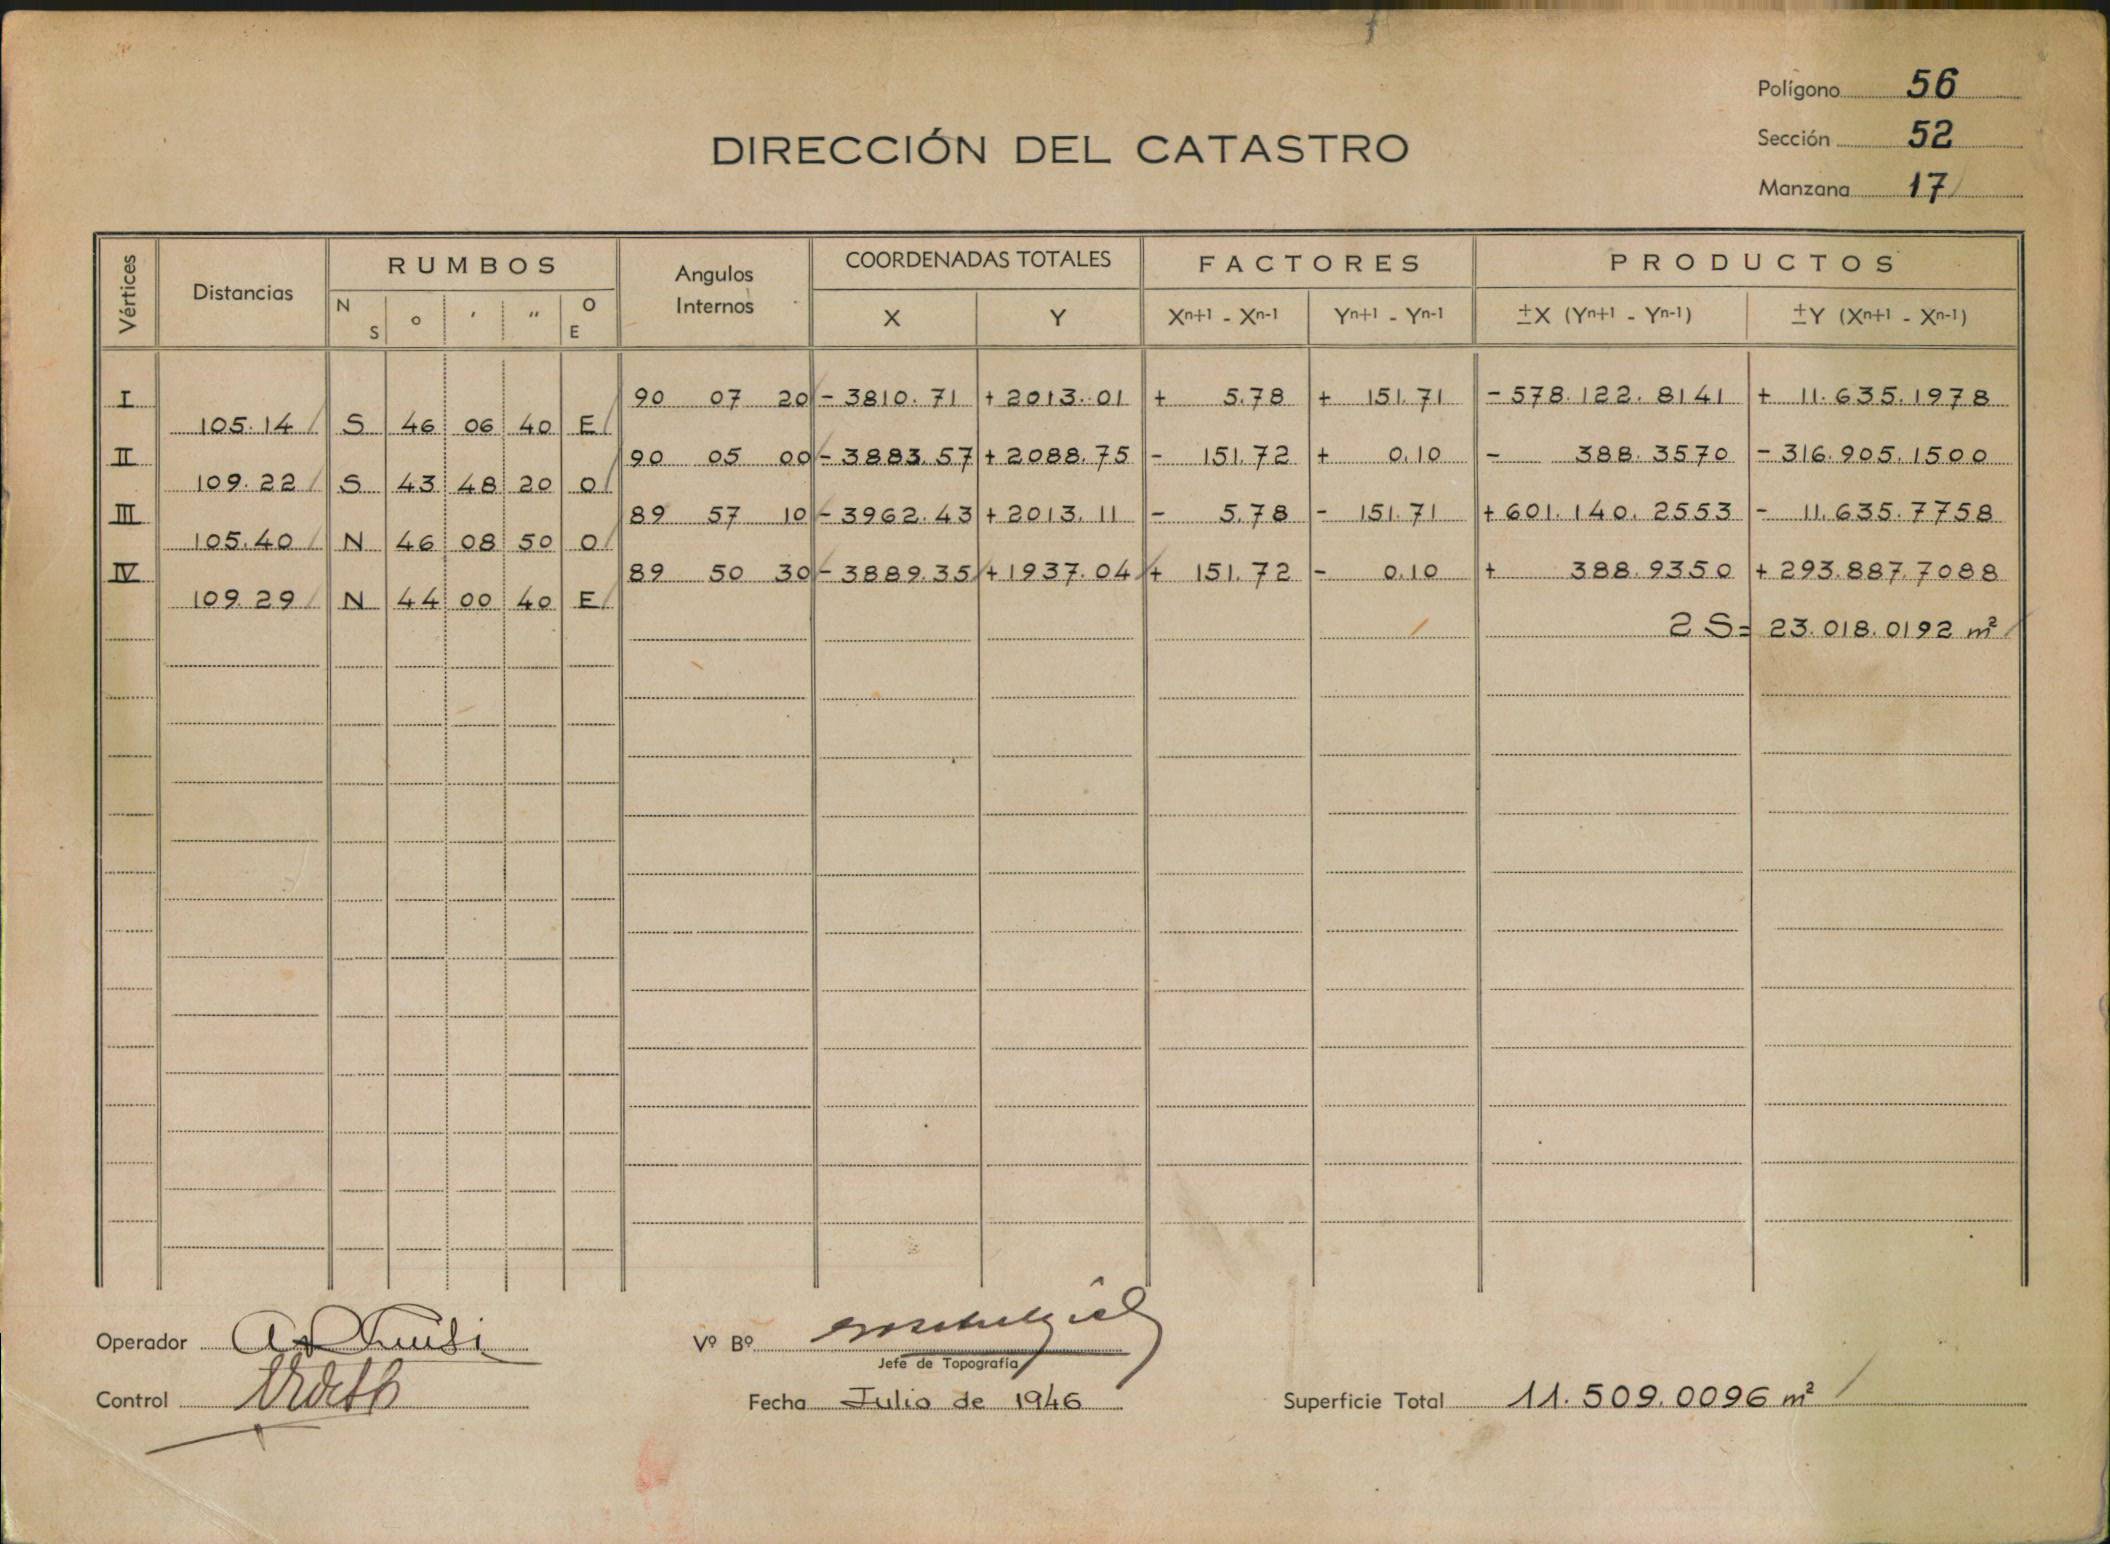 Polígono 56
DIRECCIÓN DEL CATASTRO
Sección 52
Manzana 17
Vértices Distancias RUMBOS Angulos Internos COORDENADAS TOTALES FACTORES PRODUCTOS
N S ° ' " O E X Y Xn+1 - Xn-1 Yn+1 - Yn-1 ±X (Yn+1 - Yn-1) ±Y (Xn+1 - Xn-1)
I 90 07 20 - 3810.71 + 2013.01 + 5.78 + 151.71 - 578.122.8141 + 11.635.1978
105.14 S 46 06 40 E
II 90 05 00 - 3883.57 + 2088.75 - 151.72 + 0.10 - 388.3570 - 316.905.1500
109.22 S 43 48 20 O
III 89 57 10 - 3962.43 + 2013.11 - 5.78 - 151.71 + 601.140.2553 - 11.635.7758
105.40 N 46 08 50 O
IV 89 50 30 - 3889.35 + 1937.04 + 151.72 - 0.10 + 388.9350 + 293.887.7088
109.29 N 44 00 40 E
2 S = 23.018.0192 m²
Operador
Vº Bº
Jefe de Topografía
Control
Fecha Julio de 1946
Superficie Total 11.509.0096 m²